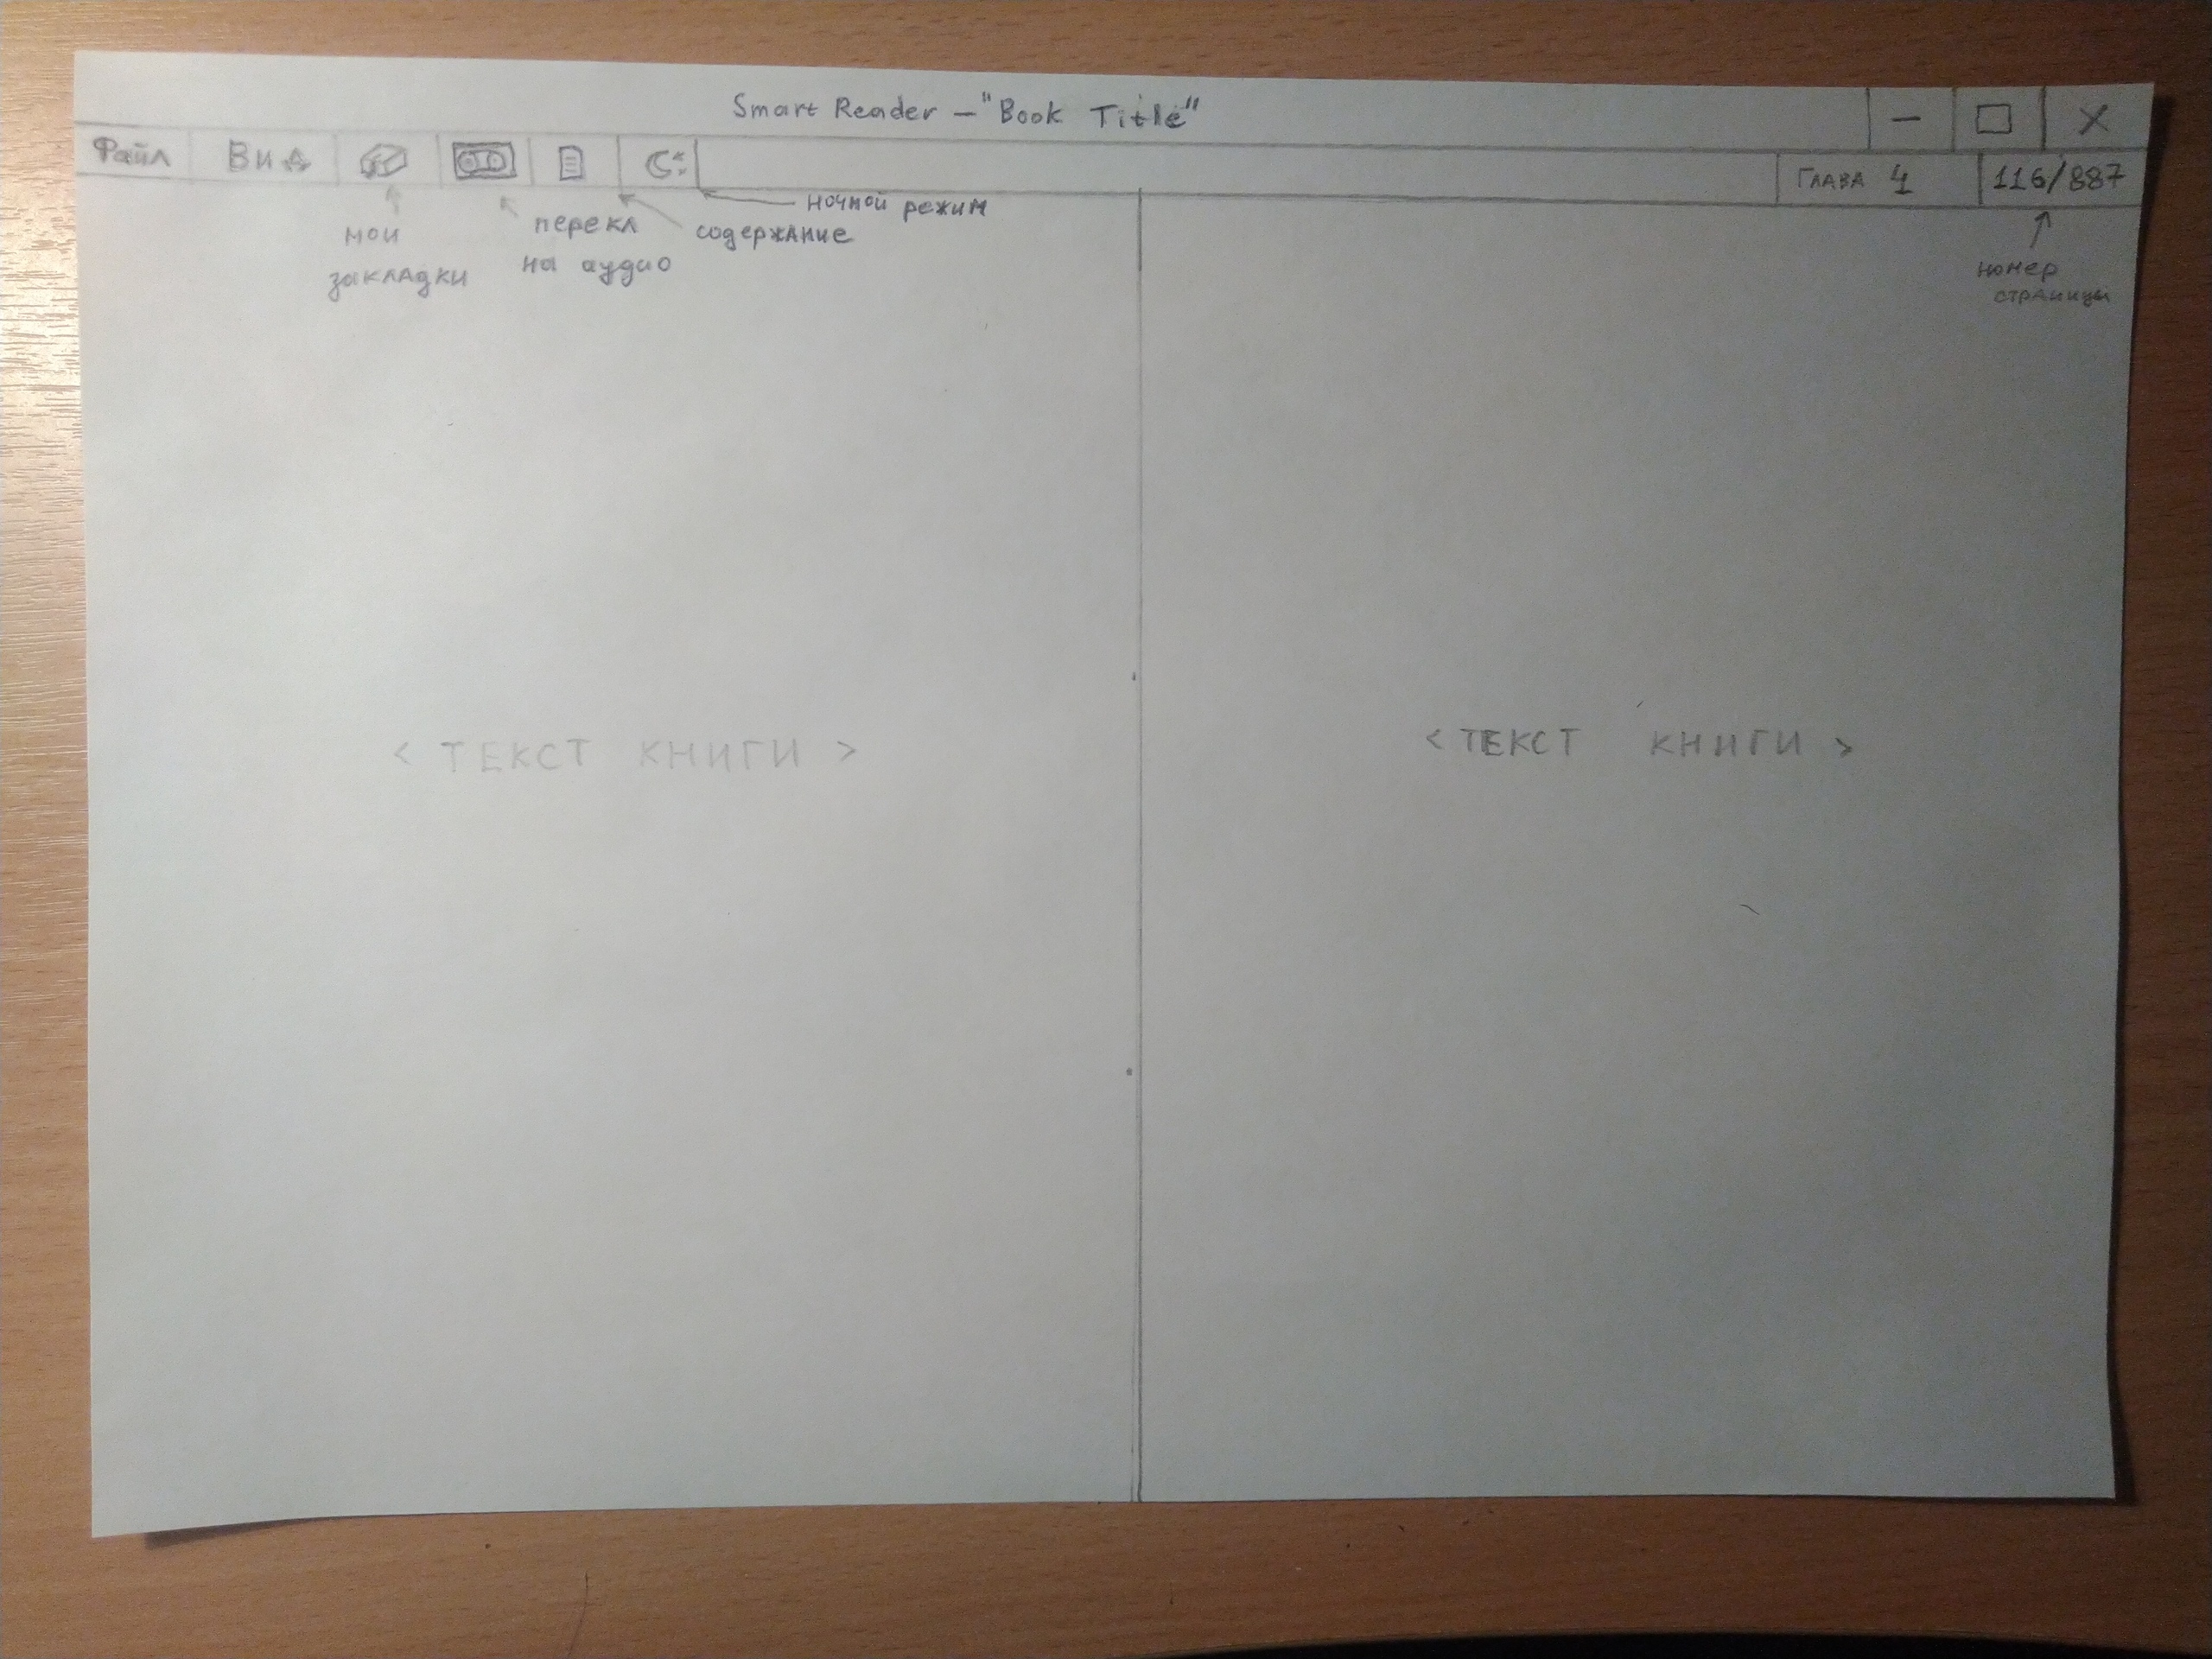 Smart Reader – "Book Title"
Файл
Вид
Глава 4
116/887
мои
закладки
перекл
на аудио
содержание
ночной режим
номер
страницы
< ТЕКСТ КНИГИ >
< ТЕКСТ КНИГИ >